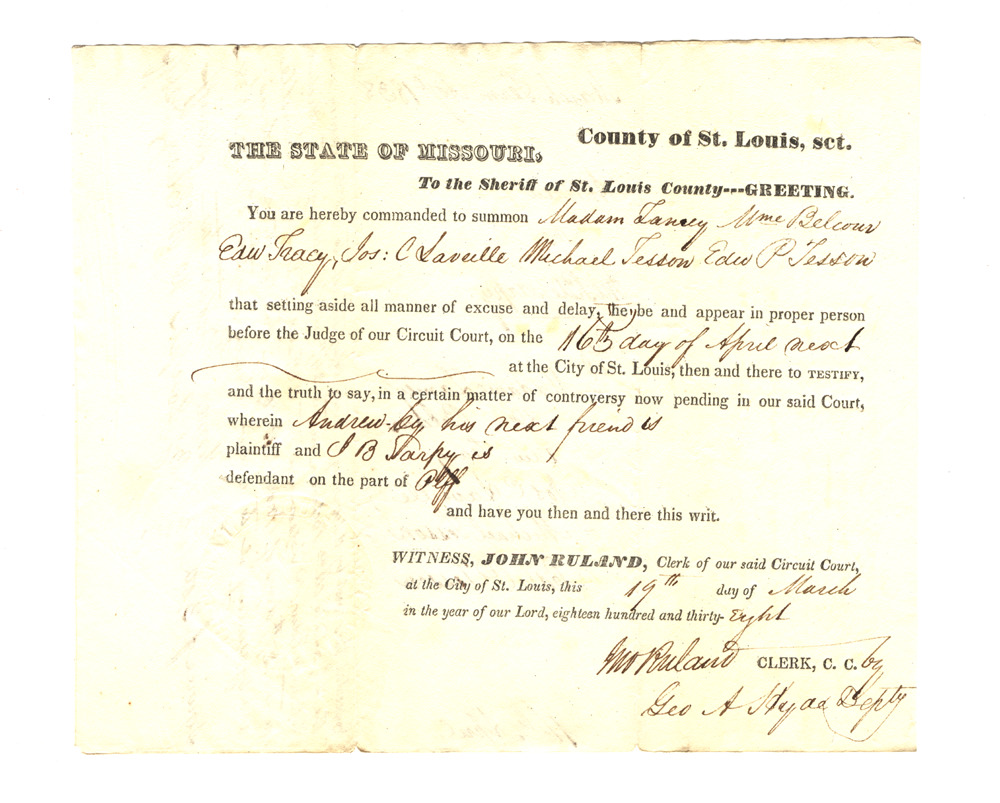 County of St. Louis, sct.
THE STATE OF MISSOURI,
To the Sheriff of St. Louis County---GREETING.
You are hereby commanded to summon Madam Mme Belcour
Edw Tracy, Jos: C Laveille Michael Tesson Edw P Tesson
that setting aside all manner of excuse and delay, they be and appear in proper person
before the Judge of our Circuit Court, on the 16th day of April next
at the City of St. Louis, then and there to TESTIFY,
and the truth to say, in a certain matter of controversy now pending in our said Court,
wherein Andrew by his next friend is
plaintiff and J B Sarpy is
defendant on the part of Plff
and have you then and there this writ.
WITNESS, JOHN RULAND, Clerk of our said Circuit Court,
at the City of St. Louis, this 19th day of March
in the year of our Lord, eighteen hundred and thirty-Eight
Jno Ruland CLERK, C. C. by
Geo A Depty